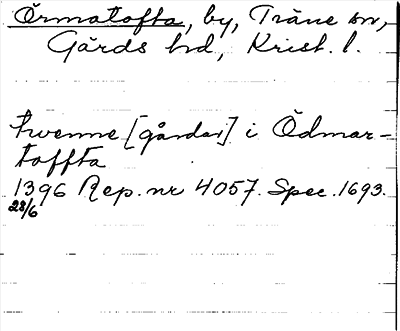 Örmatofta, by, Träne sn,
Gärds hd, Krist. l.
twenne [gårdar] i Ödmar-
toffta
1396 Rep. nr 4057. Spec. 1693.
28/6